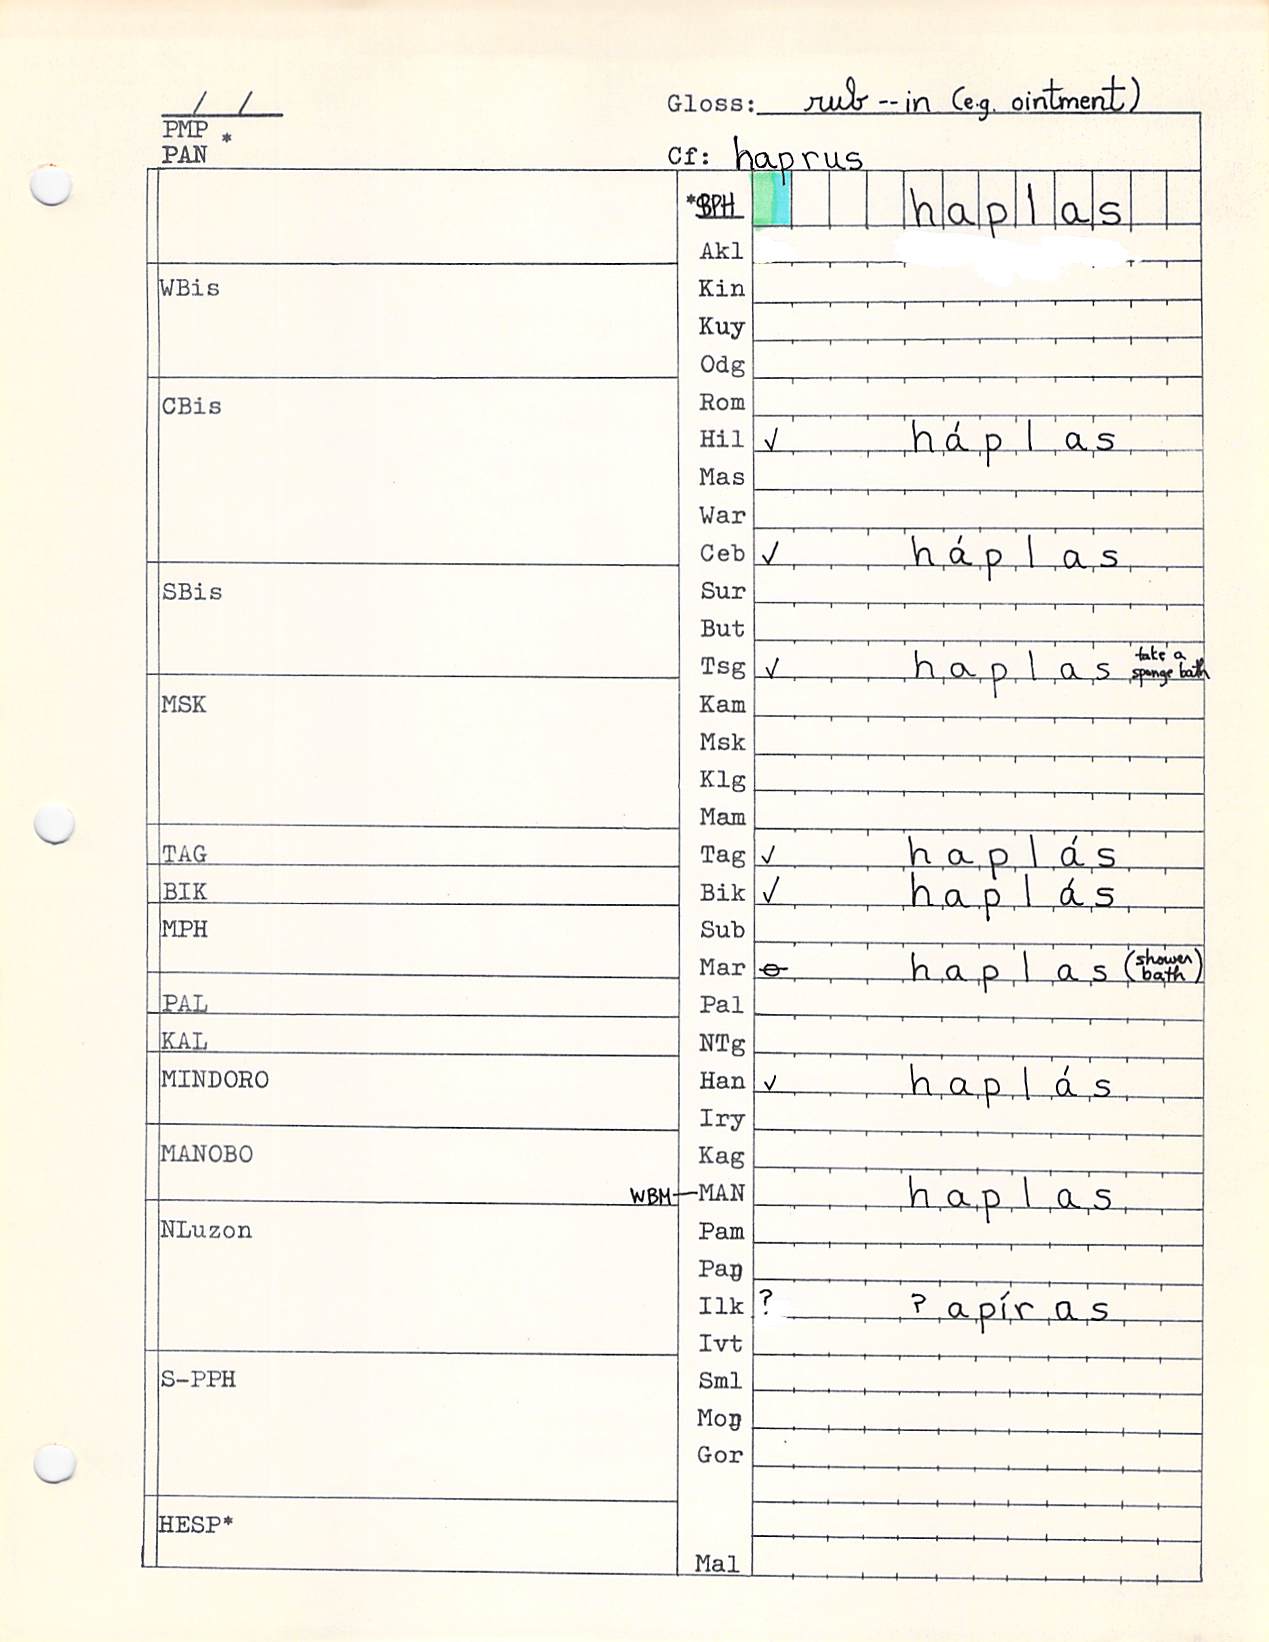 / /
Gloss: rub -- in (e.g. ointment)
PMP *
PAN
Cf: haprus
*BPH haplas
Akl
WBis
Kin
Kuy
Odg
CBis
Rom
Hil ✓ háplas
Mas
War
Ceb ✓ háplas
SBis
Sur
But
Tsg ✓ haplas take a sponge bath
MSK
Kam
Msk
Klg
Mam
TAG
Tag ✓ haplás
BIK
Bik ✓ haplás
MPH
Sub
Mar ⊖ haplas (shower bath)
PAL
Pal
KAL
NTg
MINDORO
Han ✓ haplás
Iry
MANOBO
Kag
WBM—MAN haplas
NLuzon
Pam
Paŋ
Ilk ? ?apíras
Ivt
S-PPH
Sml
Moŋ
Gor
HESP*
Mal